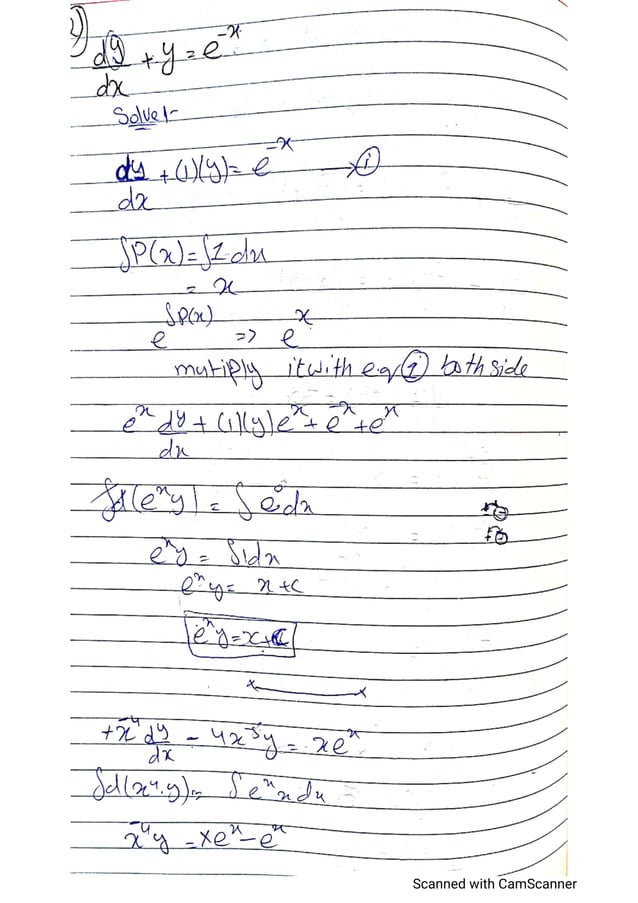 2)
dy/dx + y = e^-x
Solve:-
dy/dx + (1)(y) = e^-x → (i)
∫P(x) = ∫1.dx
= x
e^∫P(x) => e^x
mutiply it with eq (1) both side
e^x dy/dx + (1)(y)e^x + e^-x + e^x
∫d(e^x y) = ∫e^0 dx
e^x y = ∫1dx
e^x y = x + c
e^x y = x + c
+x^-4 dy/dx - 4x^-5 y = xe^x
∫d(x^-4.y) = ∫e^x x dx
x^-4 y = xe^x - e^x
Scanned with CamScanner